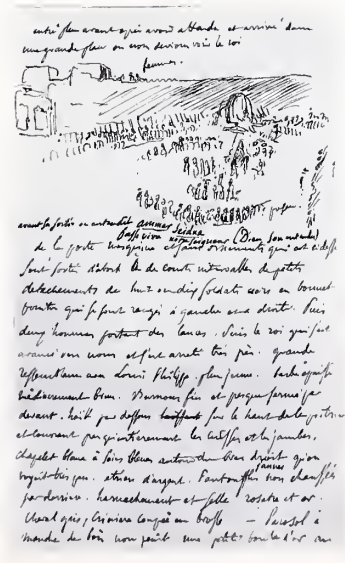 entré plus avant après avoir attendu et arrivé dans
une grande place ou nous devions voir le roi
avant sa sortie on entendit Ammar Seidna
notre seigneur (Dieu sous entendu)
de la porte mesquine et sans ornements qui est ci dessus
sont sortis d'abord à de courts intervalles de petits
detachements de huit ou dix soldats noirs en bonnet
pointu qui se sont rangés à gauche et a droite. Puis
deux hommes portant des lances. Puis le roi qui s'est
avancé vers nous et s'est arreté très près. grande
ressemblance avec Louis Philippe, plus jeune. barbe epaisse
médiocrement brun. Burnous fin et presque fermé par
devant. haïk par dessous sur le haut de la poitrine
et couvrant presque entièrement les cuisses et les jambes,
chapelet blanc à soies bleues autour du bras droit qu'on
voyait très peu. etriers d'argent. Pantouffles jaunes non chaussées
par derrière. harnachement et selle rosatre et or.
Cheval gris, crinière coupée en brosse — Parasol à
manche de bois non peint une petite boule d'or au